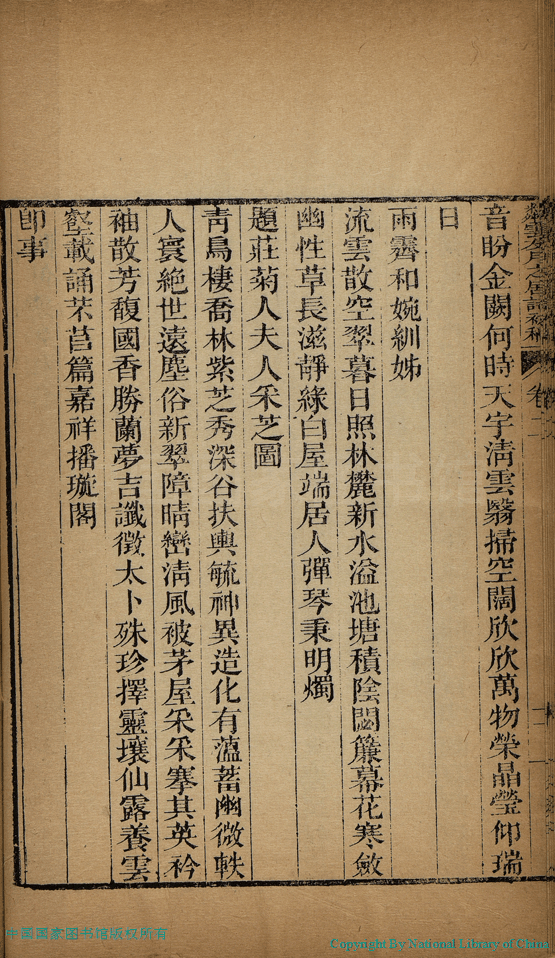 卷二
音盼金闕何時天宇淸雲翳掃空闊欣欣萬物榮晶瑩仰瑞
日
雨霽和婉紃姊
流雲散空翠暮日照林麓新水溢池塘積陰閟簾幕花寒斂
幽性草長滋靜綠白屋端居人彈琴秉明燭
題莊菊人夫人采芝圖
靑鳥棲喬林紫芝秀深谷扶輿毓神異造化有薀蓄幽微軼
人寰絕世遠塵俗新翠障晴巒淸風被茅屋采采搴其英衿
袖散芳馥國香勝蘭夢吉讖徵太卜殊珍擇靈壤仙露養雲
壑載誦芣苢篇嘉祥播璇閣
卽事
中国国家图书馆版权所有
Copyright By National Library of China